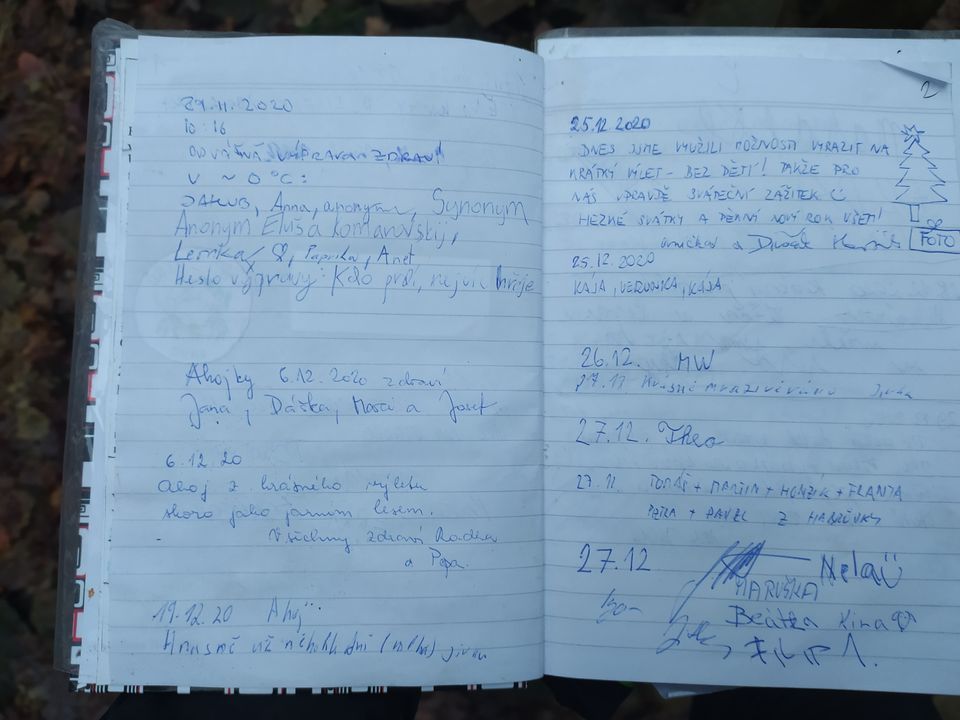 29.11.2020
10:16
ODVÁŽNÁ VÝPRAVA ZDRAVÍ
V ~ 0 °C:
JAKUB, Anna, anonym, Synonym
Anonym Eliša Romanovskij,
Lenka, Paprika, Anet
Heslo výpravy: Kdo prdí, nejvíc hřeje
Ahojky 6.12.2020 zdraví
Jana, Dáška, a Josef
6.12.20
Ahoj z krásného výletu
skoro jako jarnom lesem.
Všechny zdraví Radka
a Pepa.
19.12.20 Ahoj
už (mlha)
2
25.12.2020
DNES JSME VYUŽILI MOŽNOSTI VYRAZIT NA
KRÁTKÝ VÝLET - BEZ DĚTÍ! TAKŽE PRO
NÁS OPRAVDU SVÁTEČNÍ ZÁŽITEK
HEZKÉ SVÁTKY A PEVNÝ NOVÝ ROK VŠEM!
a
FOTO
25.12.2020
KÁJA, VERONIKA, KÁJA
26.12. MW
27.12 Krásné mrazivé ráno
27.12. Theo
27.11. TOMÁŠ + MARTIN + HONZÍK + FRANTA
PETRA + PAVEL Z HABRŮVKY
27.12 Nela
MARUŠKA
Beátka Kira